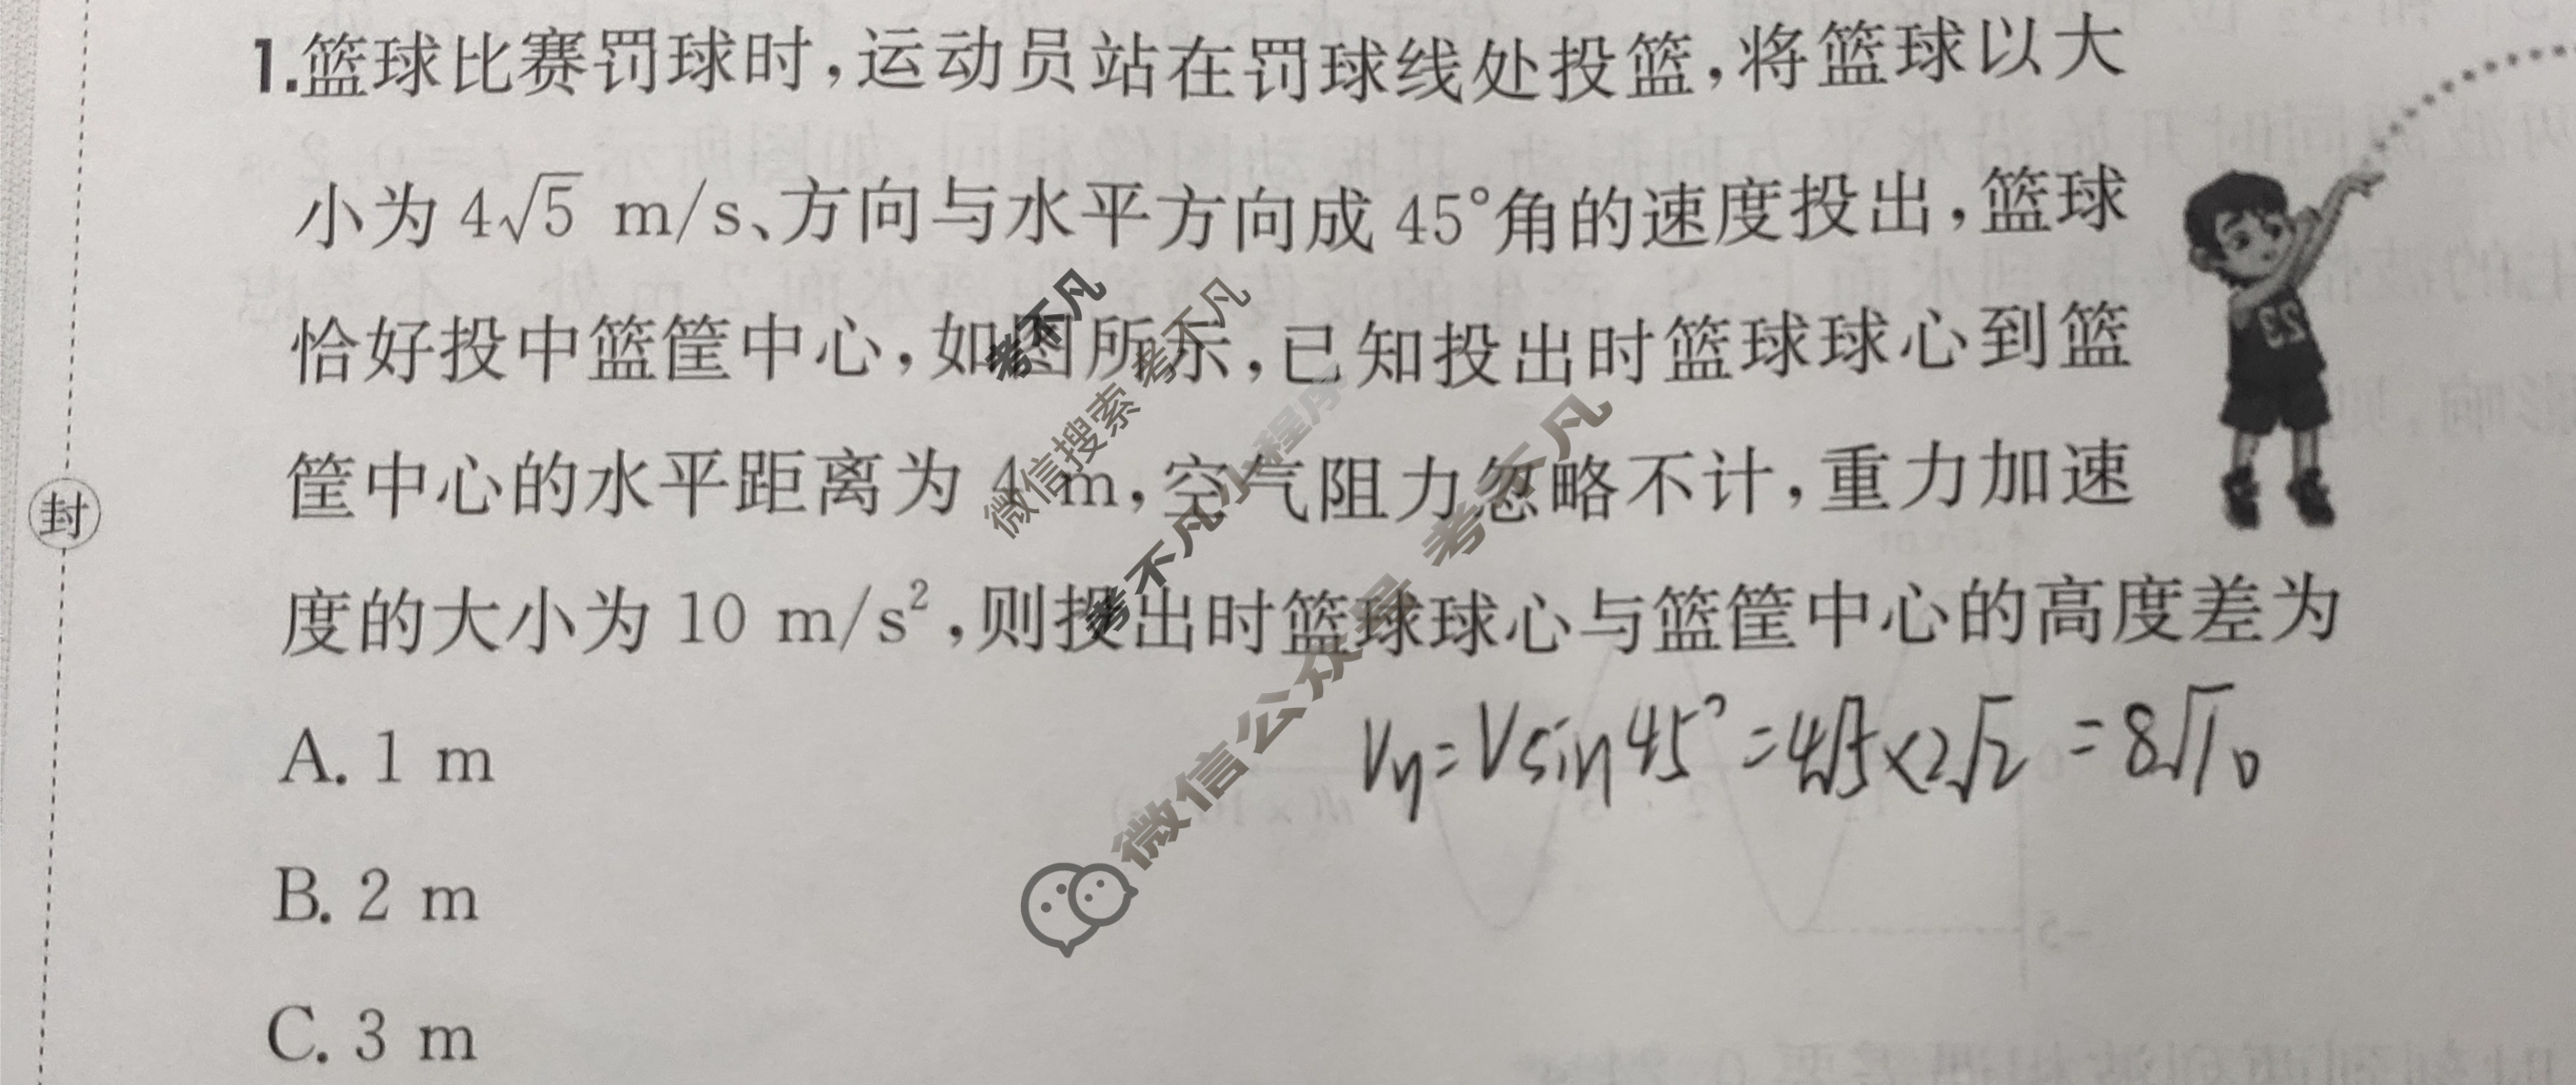 1.篮球比赛罚球时,运动员站在罚球线处投篮,将篮球以大
小为 4√5 m/s、方向与水平方向成 45°角的速度投出,篮球
恰好投中篮筐中心,如图所示,已知投出时篮球球心到篮
筐中心的水平距离为 4 m,空气阻力忽略不计,重力加速
度的大小为 10 m/s²,则投出时篮球球心与篮筐中心的高度差为
A. 1 m
B. 2 m
C. 3 m
Vy=Vsin45°=4√5×2√2=8√10
封
23
考不凡
微信搜索 考不凡
考不凡小程序
微信公众号 考不凡